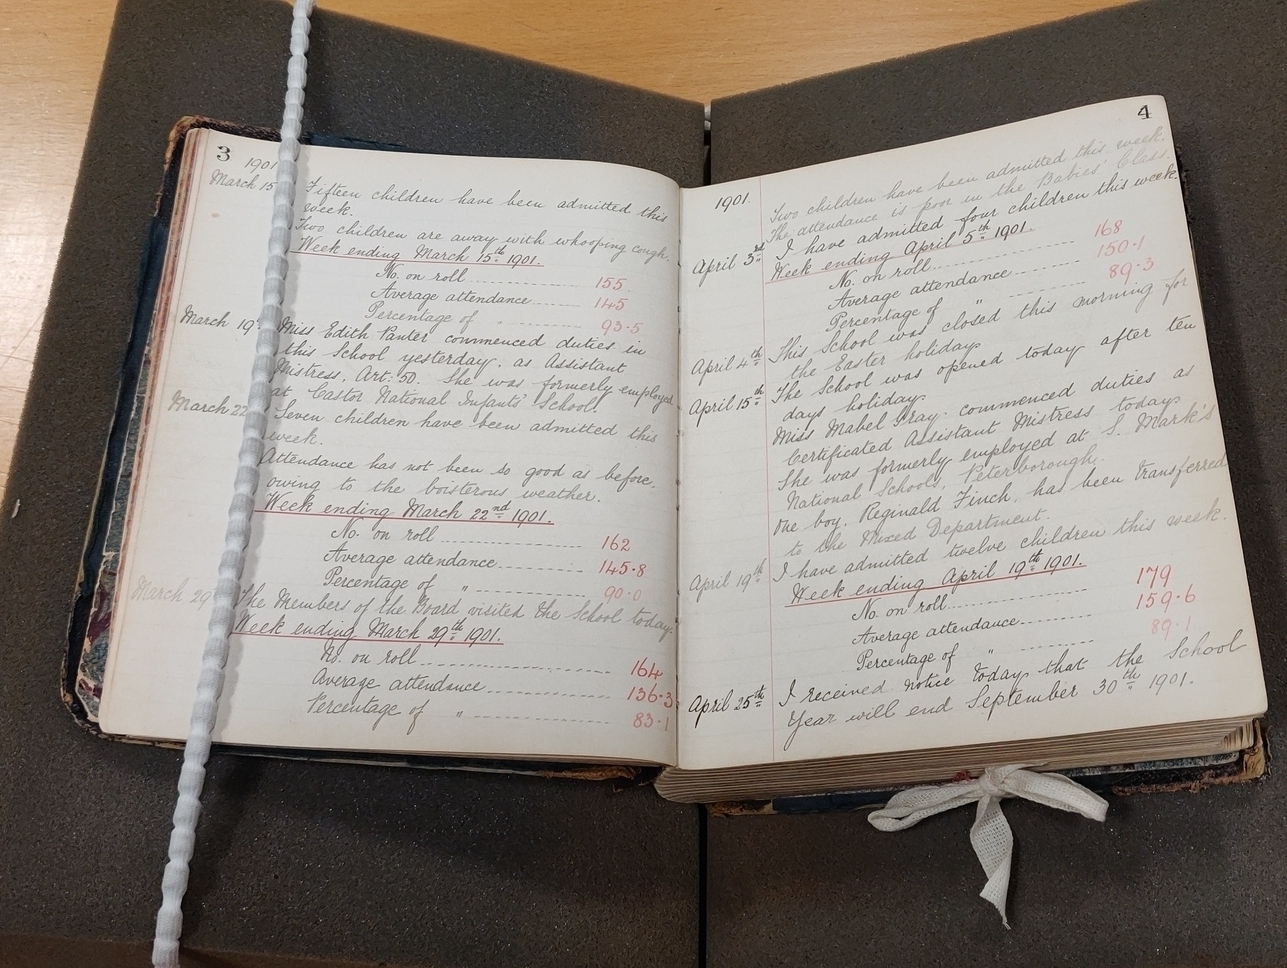 3
1901
March 15 Fifteen children have been admitted this
week.
Two children are away with whooping cough.
Week ending March 15th 1901.
No. on roll 155
Average attendance 145
Percentage of " 93.5
March 19th Miss Edith Panter commenced duties in
this School yesterday, as Assistant
Mistress, Art: 50. She was formerly employed
at Castor National Infants' School.
March 22 Seven children have been admitted this
week.
Attendance has not been so good as before,
owing to the boisterous weather.
Week ending March 22nd 1901.
No. on roll 162
Average attendance 145.8
Percentage of " 90.0
March 29 The Members of the Board visited the School today.
Week ending March 29th 1901.
No. on roll 164
Average attendance 136.3
Percentage of " 83.1
4
1901.
Two children have been admitted this week.
The attendance is poor in the Babies' Class.
April 3rd I have admitted four children this week.
Week ending April 5th 1901.
No. on roll 168
Average attendance 150.1
Percentage of " 89.3
April 4th This School was closed this morning for
the Easter holidays
April 15th The School was opened today after ten
days holiday.
Miss Mabel Gray commenced duties as
Certificated Assistant Mistress today.
She was formerly employed at S. Mark's
National Schools, Peterborough.
One boy, Reginald Finch, has been transferred
to the Mixed Department.
April 19th I have admitted twelve children this week.
Week ending April 19th 1901.
No. on roll 179
Average attendance 159.6
Percentage of " 89.1
April 25th I received notice today that the School
Year will end September 30th 1901.